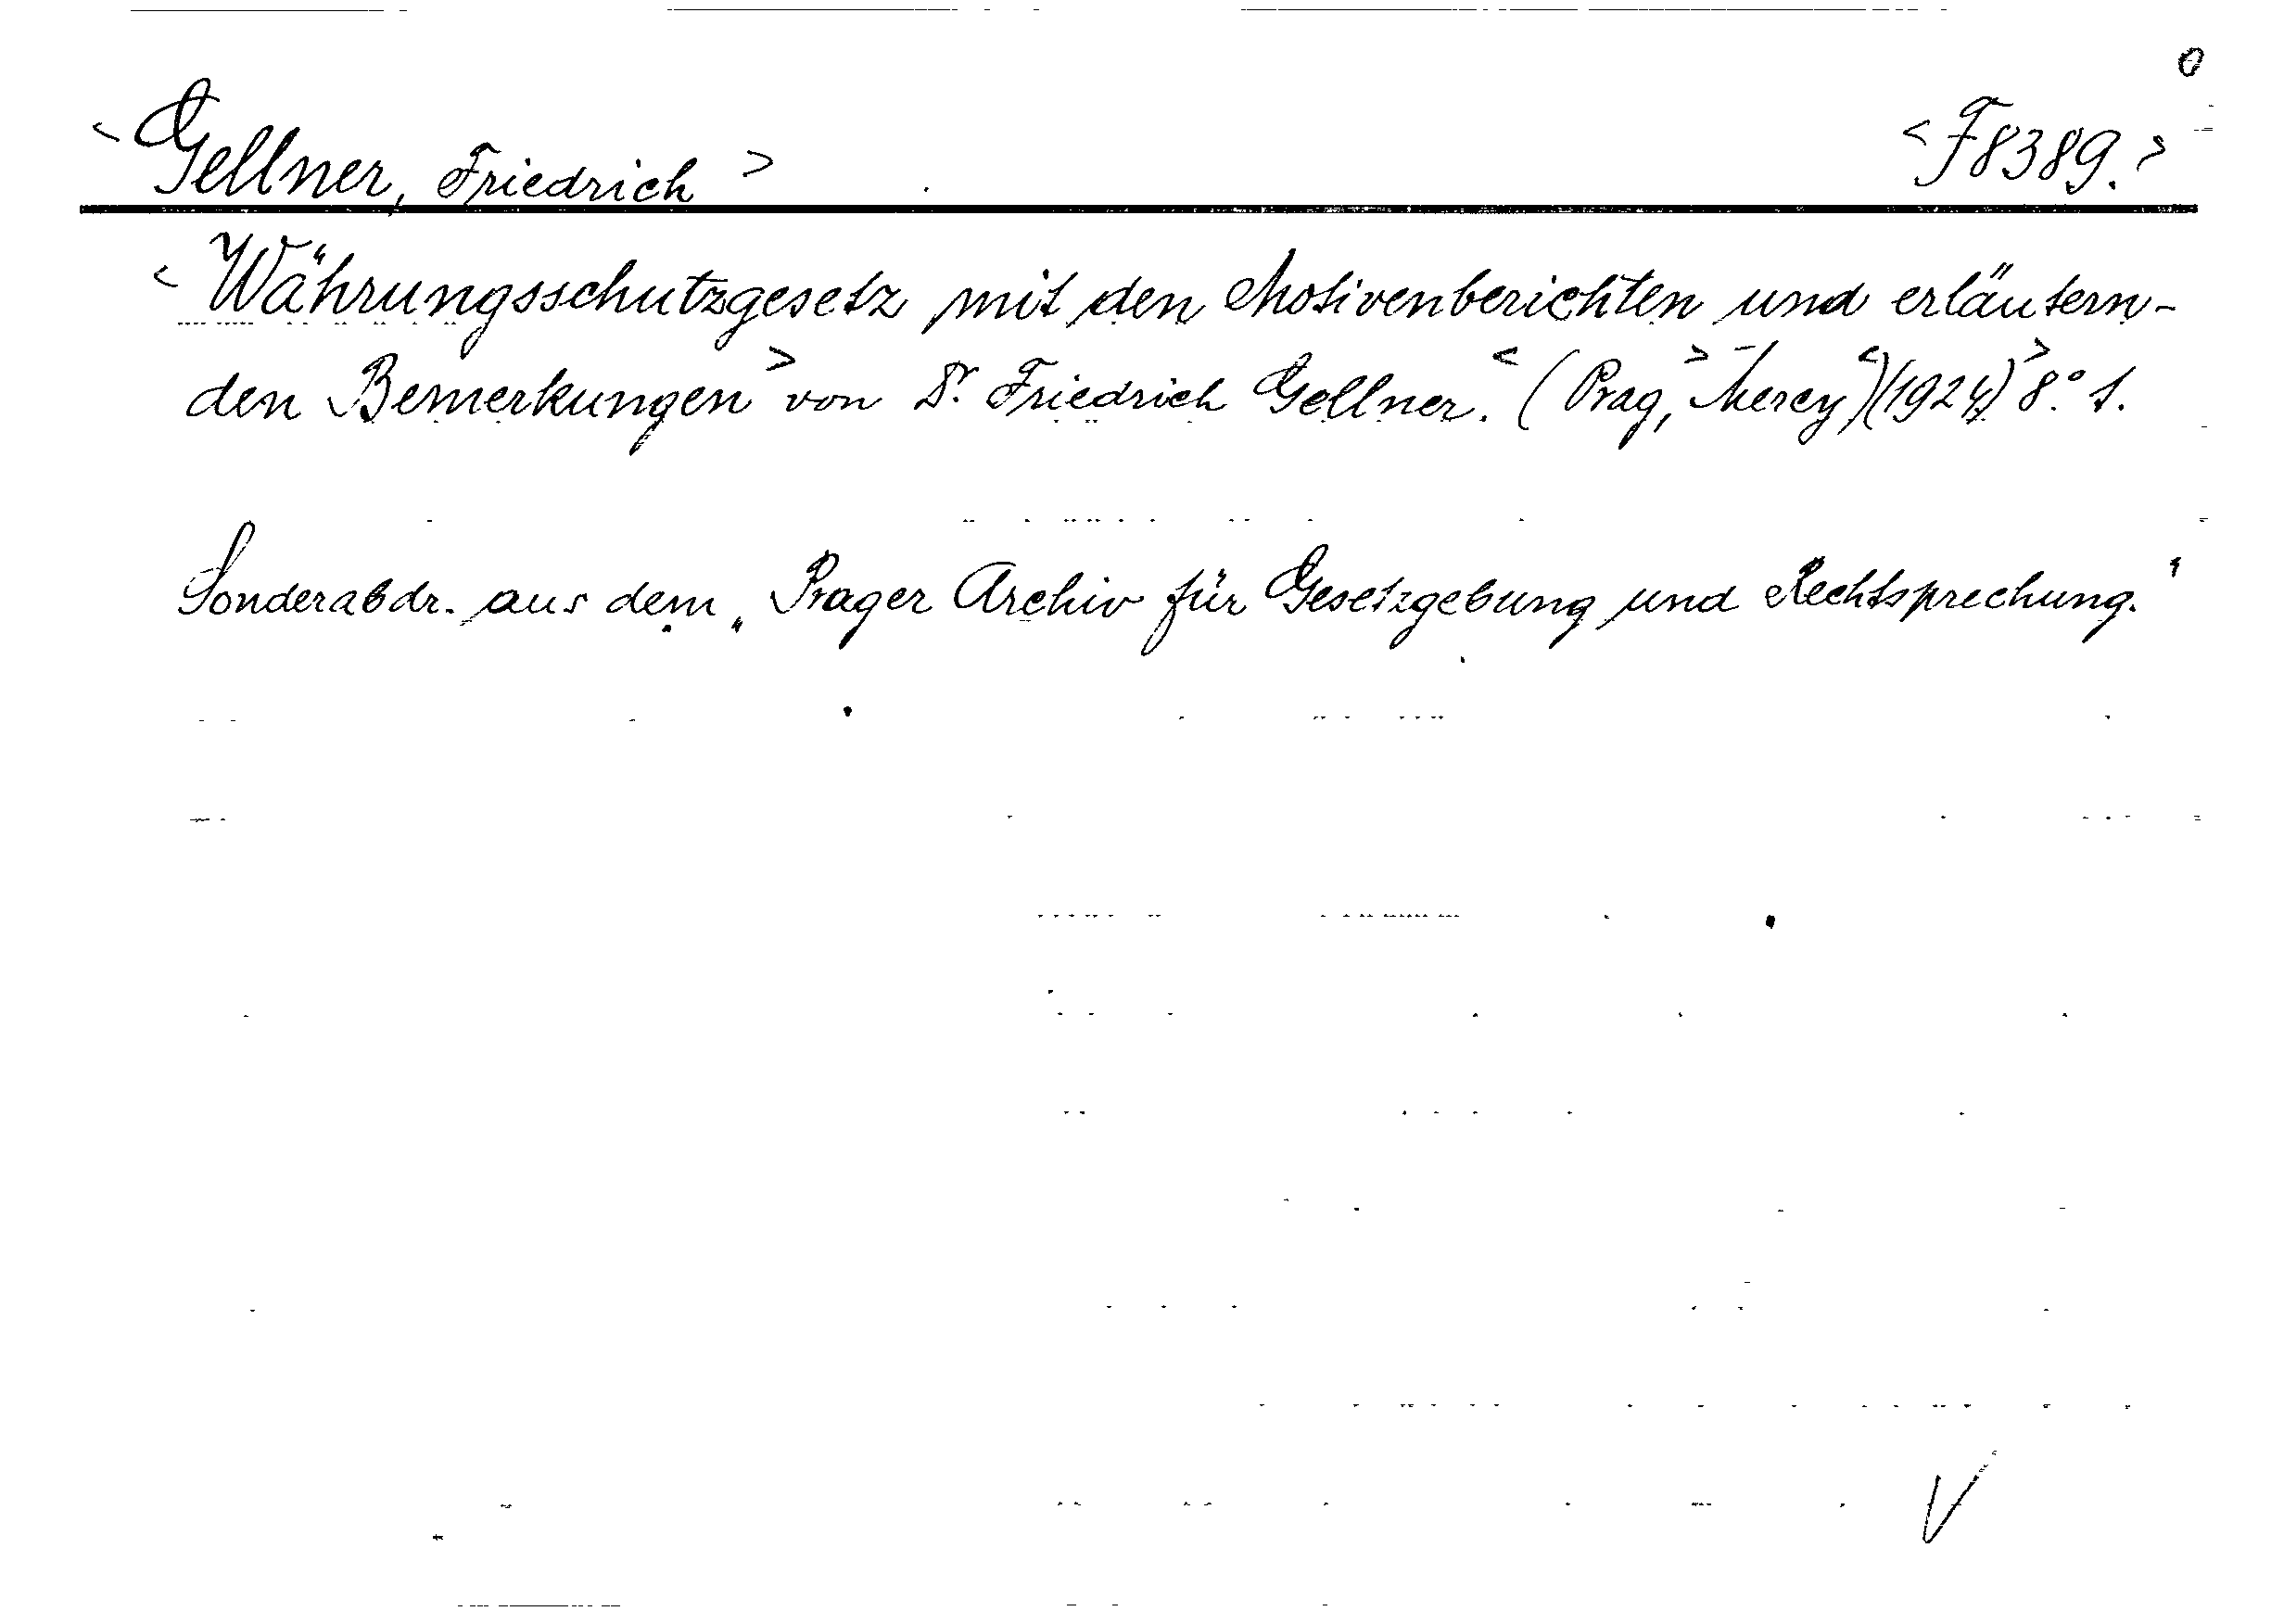 0
<Gellner, Friedrich> <F8389.>
<Währungsschutzgesetz mit den Motivenberichten und erläutern-
den Bemerkungen> von Dr. Friedrich Gellner. <(Prag,> Mercy<)(1924)> 8.° 1.
Sonderabdr. aus dem „Prager Archiv für Gesetzgebung und Rechtsprechung."